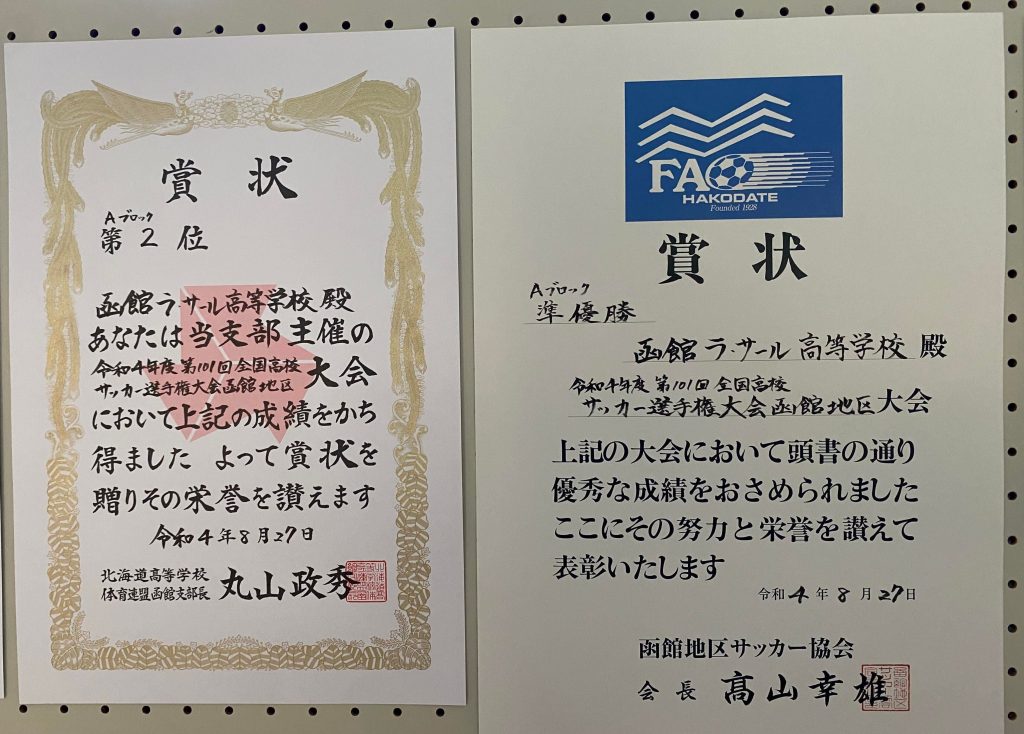 賞 状
Aブロック
第 2 位
函館ラ・サール高等学校 殿
あなたは当支部主催の
令和4年度 第101回 全国高校
サッカー選手権大会函館地区 大会
において上記の成績をかち
得ました よって賞状を
贈りその栄誉を讃えます
令和4年8月27日
北海道高等学校
体育連盟函館支部長 丸山政秀
FA
HAKODATE
Founded 1928
賞 状
Aブロック
準優勝
函館ラ・サール高等学校 殿
令和4年度 第101回 全国高校
サッカー選手権大会函館地区 大会
上記の大会において頭書の通り
優秀な成績をおさめられました
ここにその努力と栄誉を讃えて
表彰いたします
令和 4 年 8 月 27 日
函館地区サッカー協会
会 長 髙山幸雄